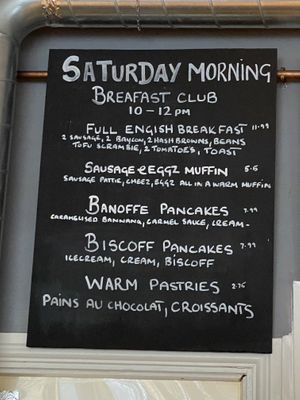 SATURDAY MORNING
BREAFAST CLUB
10 - 12 PM
FULL ENGISH BREAKFAST 11.99
2 SAUSAGE, 2 BAYCON, 2 HASH BROWNS, BEANS
TOFU SCRAMBLE, 2 TOMATOES, TOAST
SAUSAGE & EGGZ MUFFIN 5.5
SAUSAGE PATTIE, CHEEZ, EGGZ ALL IN A WARM MUFFIN
BANOFFE PANCAKES 7.99
CARAMELISED BANNANA, CARMEL SAUCE, CREAM-
BISCOFF PANCAKES 7.99
ICECREAM, CREAM, BISCOFF
WARM PASTRIES 2.75
PAINS AU CHOCOLAT, CROISSANTS